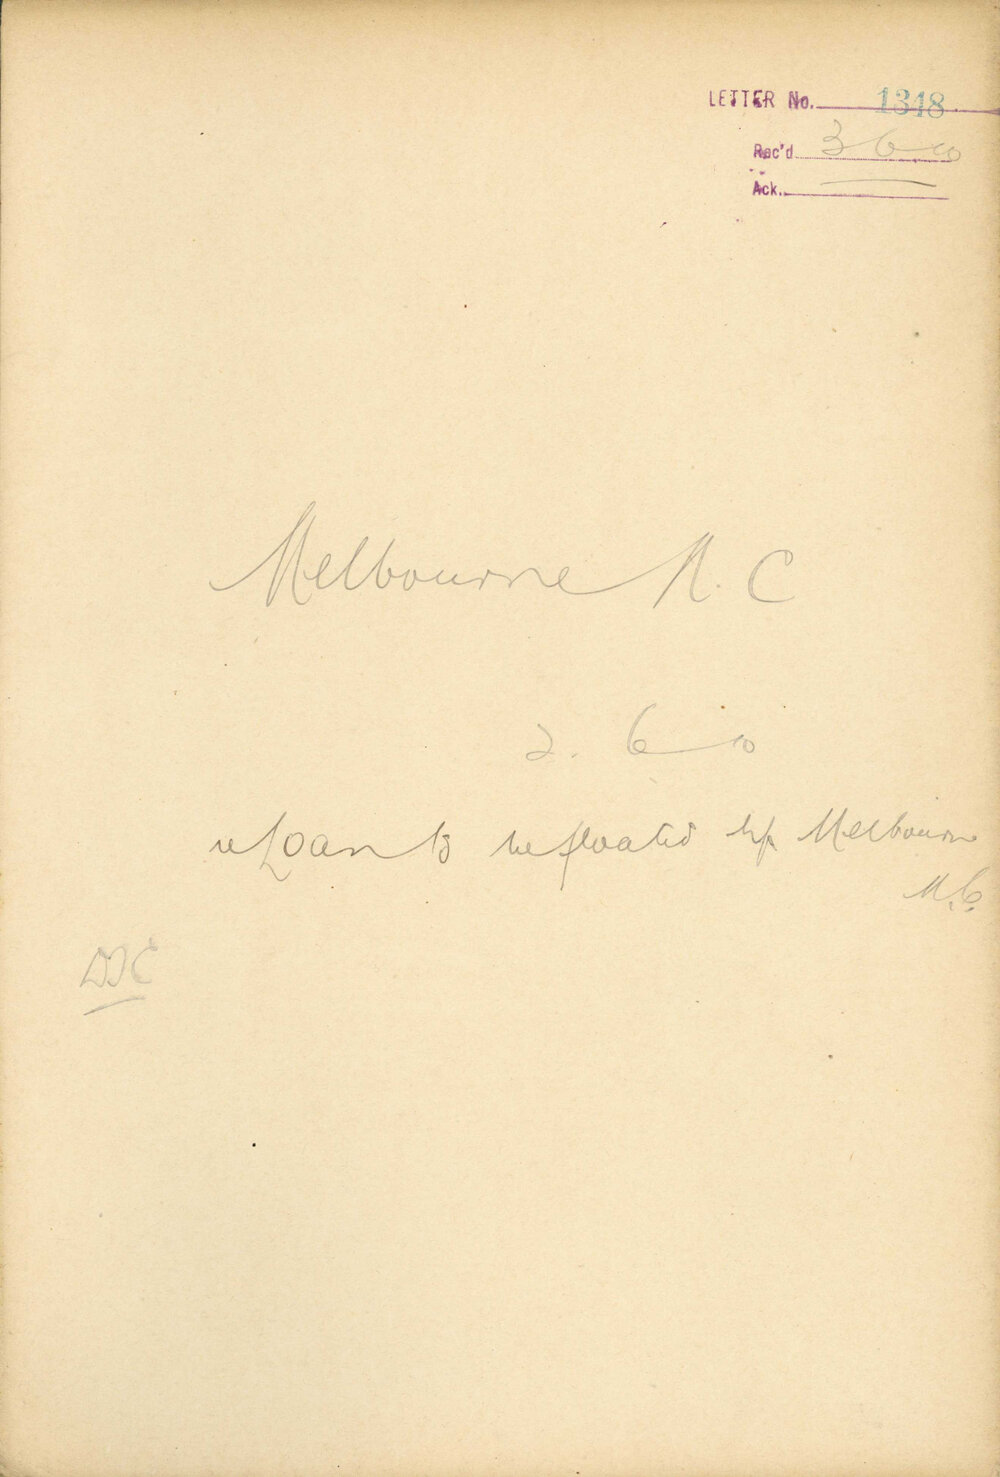 LETTER No. 1318
Rec'd 3 6 10
Ack.
Melbourne M. C
2. 6 10
re Loan to be floated by Melbourne
M.C.